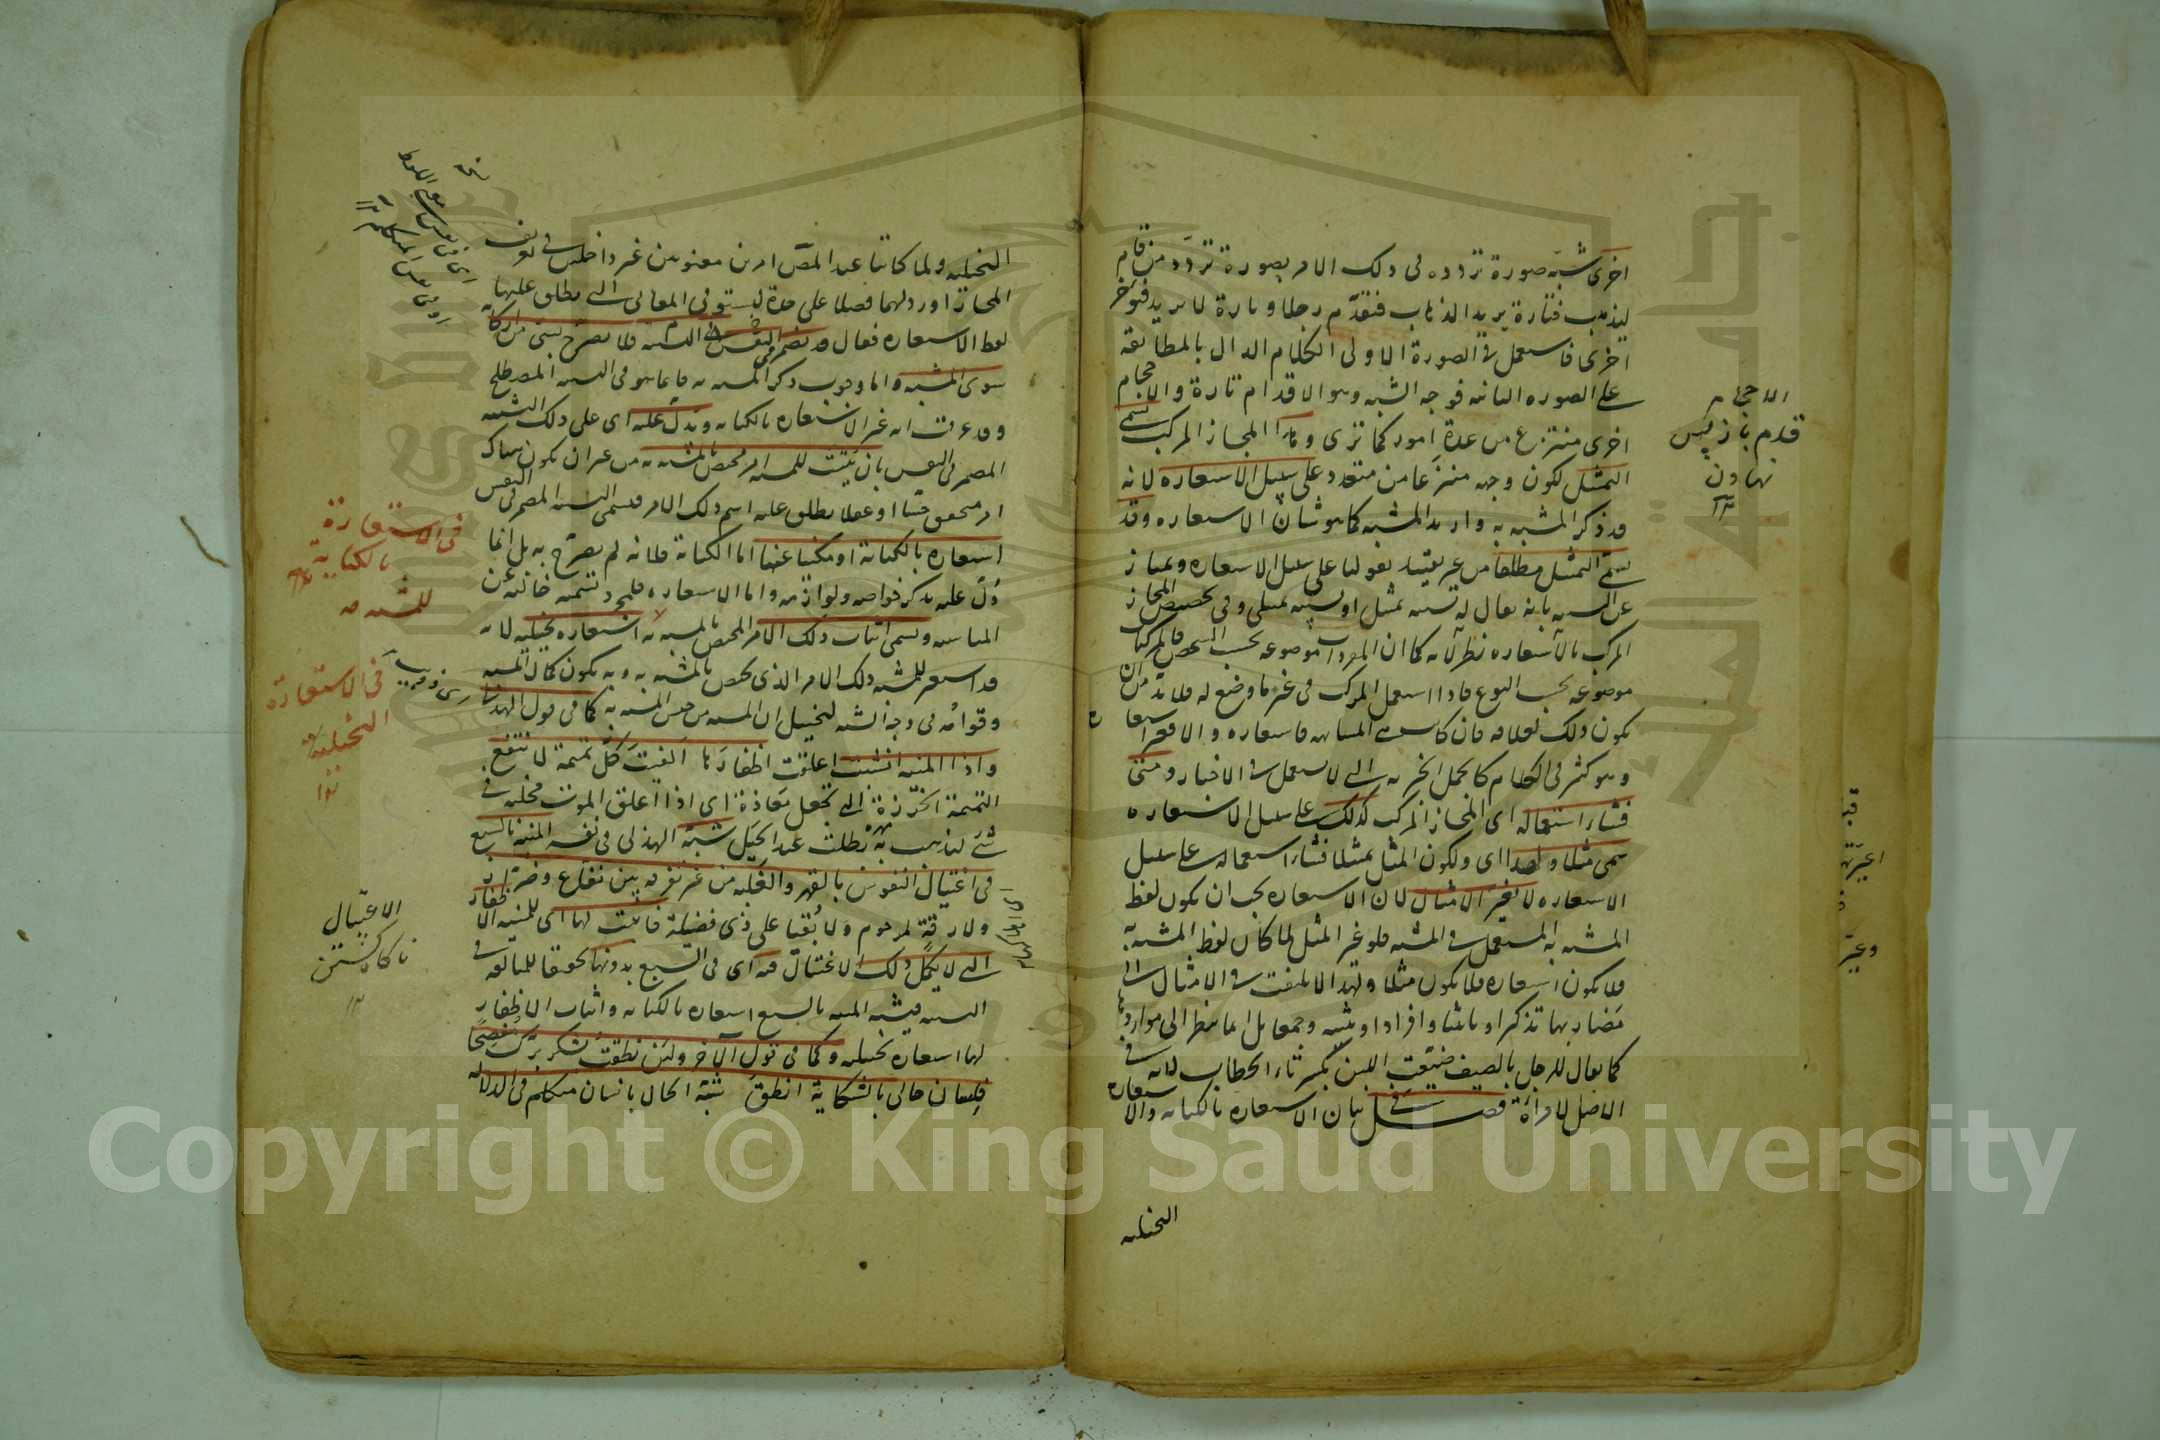 اخرى شبه صورة تردده فى ذلك الامر بصورة تردد من قام
ليذهب فتارة يريد الذهاب فتقدم رجلا وتارة لا يريد فتؤخر
اخرى فاستعمل فى الصورة الاولى الكلام الدال بالمطابقة
على الصورة الثانية فوجه الشبه وهو الاقدام تارة والاحجام
اخرى منتزع من عدة امور كما ترى وهذا المجاز المركب يسمى
التمثيل لكون وجهه منتزعا من متعدد على سبيل الاستعارة لانه
قد ذكر المشبه به واريد المشبه كما هو شان الاستعارة وقد
يسمى التمثيل مطلقا من غير تقييد بقولنا على سبيل الاستعارة ويمتاز
عن التشبيه بانه يقال له تشبيه تمثيل او تشبيه تمثيلى وفى تخصيص المجاز
المركب بالاستعارة نظر لانه كما ان المفردات موضوعه بحسب الشخص فالمركبات
موضوعه بحسب النوع فاذا استعمل المركب فى غير ما وضع له فلا بد من ان
يكون ذلك لعلاقة فان كانت هى المشابهة فاستعارة والا فغير استعارة
وهو كثير فى الكلام كالجمل الخبرية التى لا تستعمل فى الاخبار ومتى
فشا استعماله اى المجاز المركب كذلك على سبيل الاستعارة
سمى مثلا ولهذا اى ولكون المثل تمثيلا فشا استعماله على سبيل
الاستعارة لا تغير الامثال لان الاستعارة يجب ان يكون لفظ
المشبه به المستعمل فى المشبه فلو غير المثل لما كان لفظ المشبه به
فلا يكون استعارة فلا يكون مثلا ولهذا لا يلتفت فى الامثال الى
مضاربها تذكيرا وتانيثا وافرادا وتثنية وجمعا بل انما ينظر الى مواردها
كما يقال للرجل بالصيف ضيعت اللبن بكسر تاء الخطاب لانه فى
الاصل لامراة فصل فى بيان الاستعارة بالكناية والاستعارة
التخييلية
الاحجام
قدم باز پس
نهادن
١٢
التخييلية ولما كانتا عند المصنف امرين معنويين غير داخلين فى تعريف
المجاز اورد لهما فصلا على حدة ليستوفى المعانى التى يطلق عليها
لفظ الاستعارة فقال قد يضمر التشبيه فى النفس فلا يصرح بشئ من اركانه
سوى المشبه واما وجوب ذكر المشبه به فانما هو فى التشبيه المصطلح
وقد عرفت انه غير الاستعارة بالكناية ويدل عليه اى على ذلك التشبيه
المضمر فى النفس بان يثبت للمشبه امر مختص بالمشبه به من غير ان يكون هناك
امر متحقق حسا او عقلا يطلق عليه اسم ذلك الامر فيسمى التشبيه المضمر فى النفس
استعارة بالكناية او مكنيا عنها اما الكناية فلانه لم يصرح به بل انما
دل عليه بذكر خواصه ولوازمه واما الاستعارة فمجرد تسمية خالية عن
المناسبة ويسمى اثبات ذلك الامر المختص بالمشبه به استعارة تخييلية لانه
قد استعير للمشبه ذلك الامر الذى يختص بالمشبه به وبه يكون كمال المشبه به
وقوامه فى وجه الشبه ليخيل ان المشبه من جنس المشبه به كما فى قول الهذلى
واذا المنية انشبت اى علقت اظفارها الفيت كل تميمة لا تنفع
التميمة الخرزة التى تجعل معاذة اى اذا اعلق الموت مخلبه فى
شئ ليذهب به بطلت عنده الحيل شبه الهذلى فى نفسه المنية بالسبع
فى اغتيال النفوس بالقهر والغلبة من غير تفرقة بين نفاع وضرار
ولا رقة لمرحوم ولا بقيا على ذى فضيلة فاثبت لها اى للمنية الاظفار
التى لا يكمل ذلك الاغتيال فيه اى فى السبع بدونها تحقيقا للمبالغة فى
التشبيه فتشبيه المنية بالسبع استعارة بالكناية واثبات الاظفار
لها استعارة تخييلية وكما فى قول الآخر ولئن نطقت بشكر برك مفصحا
فلسان حالى بالشكاية انطق شبه الحال بانسان متكلم فى الدلالة
فى الاستعارة
بالكناية
للمشبه به
فى الاستعارة
التخييلية
الاغتيال
ناگاه كشتن
١٢